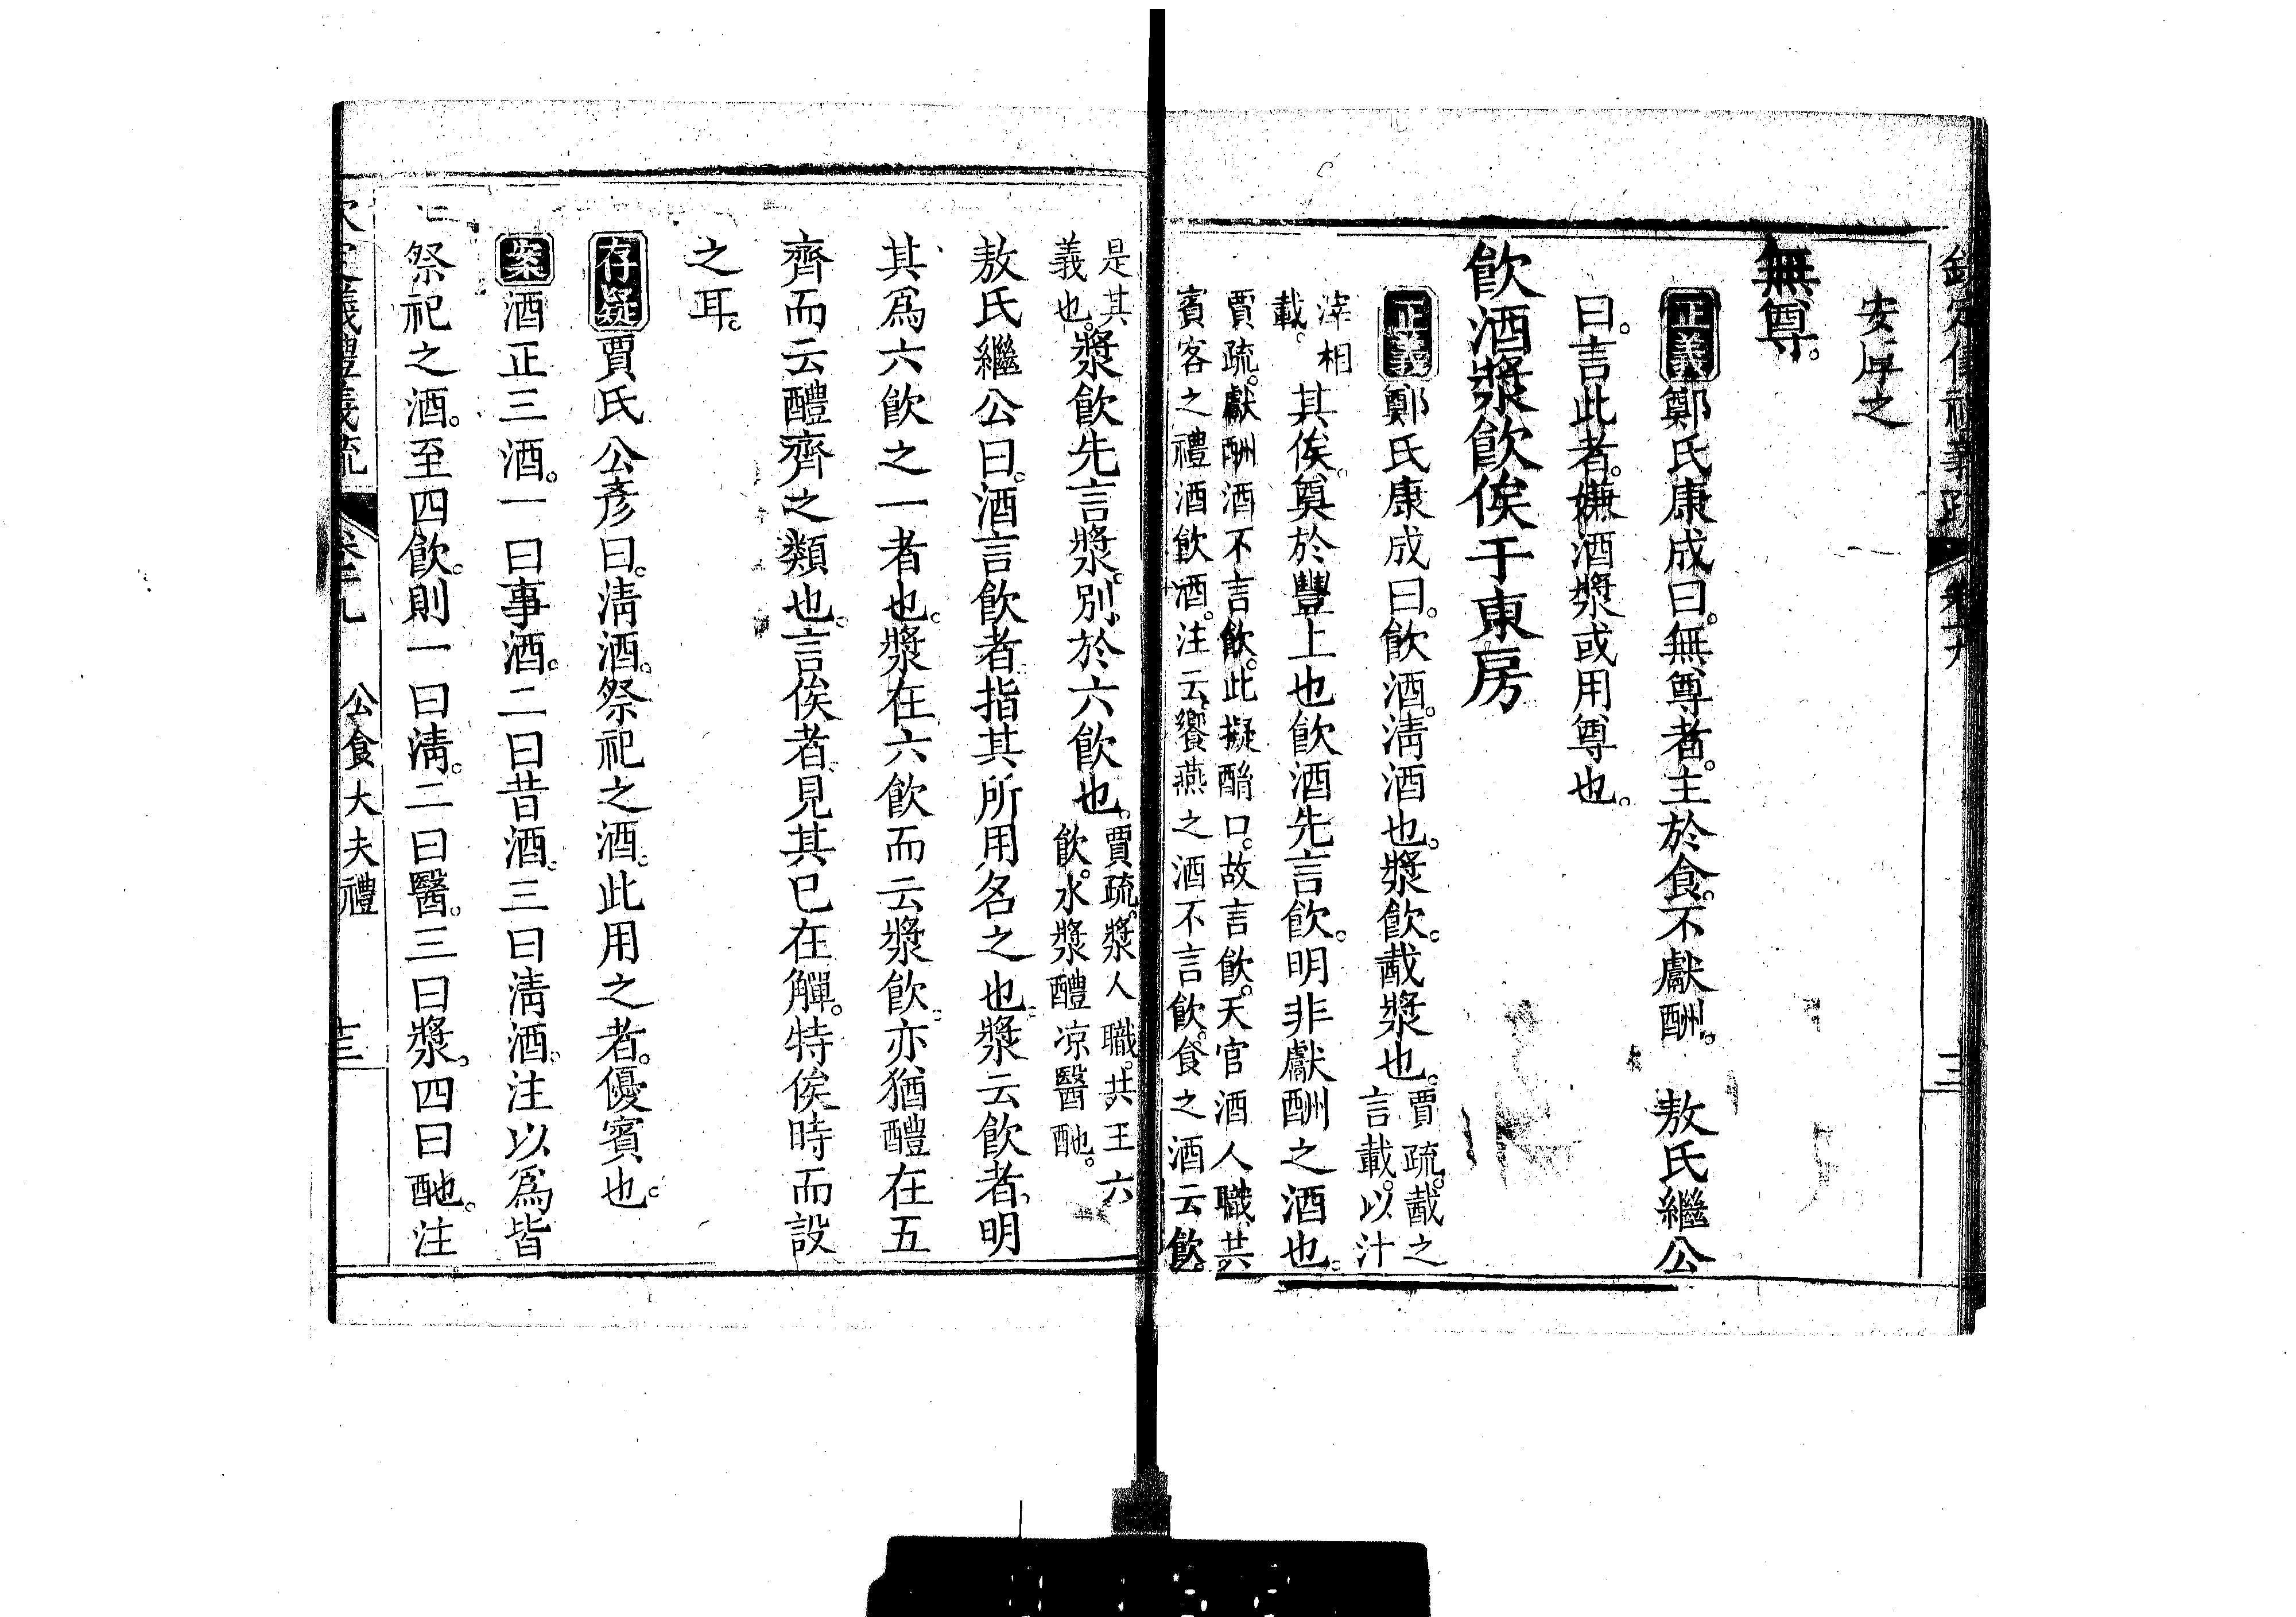 安厚之
無尊。
正義鄭氏康成曰。無尊者。主於食。不獻酬。 敖氏繼公
曰。言此者。嫌酒漿或用尊也。
飮酒漿飮俟于東房
正義鄭氏康成曰。飮酒。淸酒也。漿飮。酨漿也。賈疏。酨之
言載。以汁
滓相
載。其俟。奠於豐上也飮酒先言飮。明非獻酬之酒也。
賈疏。獻酬酒不言飮。此擬酳口。故言飮。天官酒人職。共
賓客之禮酒飮酒。注云。饗燕之酒不言飮。食之酒云飮。
是其
義也。漿飮先言漿。別於六飮也。賈疏。漿人職。共王六
飮。水漿醴凉醫酏。
敖氏繼公曰。酒言飮者指其所用名之也。漿云飮者。明
其爲六飮之一者也。漿在六飮而云漿飮。亦猶醴在五
齊而云醴齊之類也。言俟者見其已在觶。特俟時而設
之耳。
存疑賈氏公彥曰。淸酒。祭祀之酒。此用之者。優賓也。
案酒正三酒。一曰事酒。二曰昔酒。三曰淸酒。注以爲皆
祭祀之酒。至四飮。則一曰淸。二曰醫。三曰漿。四曰酏。注
公食大夫禮